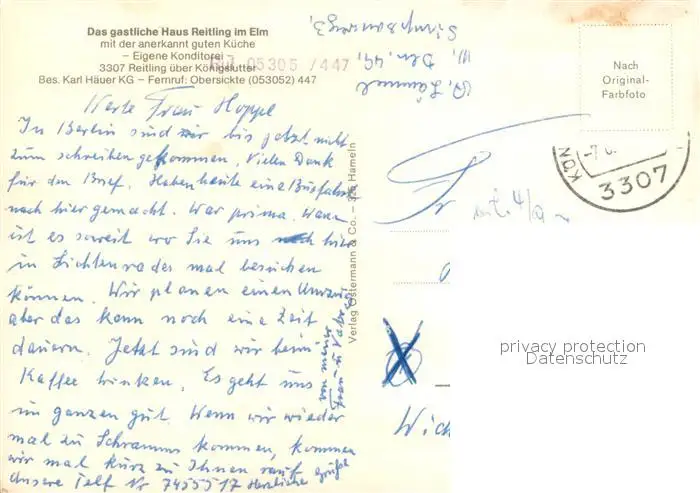 Das gastliche Haus Reitling im Elm
mit der anerkannt guten Küche
– Eigene Konditorei –
3307 Reitling über Königslutter
Bes. Karl Häuer KG – Fernruf: Obersickte (053052) 447
05305 /447
Werte Frau Hoppe
In Berlin sind wir bis jetzt nicht
zum schreiben gekommen, Vielen Dank
für den Brief. Haben heute eine Busfahrt
nach hier gemacht. War prima. Wann
ist es soweit wo Sie uns hier
in Lichtenrades mal besuchen
können. Wir planen einen Umzug
aber das kann noch eine Zeit
dauern. Jetzt sind wir beim
Kaffee trinken. Es geht uns
im ganzen gut. Wenn wir wieder
mal zu Schramms kommen, kommen
wir mal kurz zu Ihnen rauf
Unsere Telf Nr 7455517 Herzliche Grüße
von meiner
Frau u
Verlag Ostermann & Co. – 325 Hameln
Nach
Original-
Farbfoto
KÖN
-7.
3307
Fr
privacy protection
Datenschutz